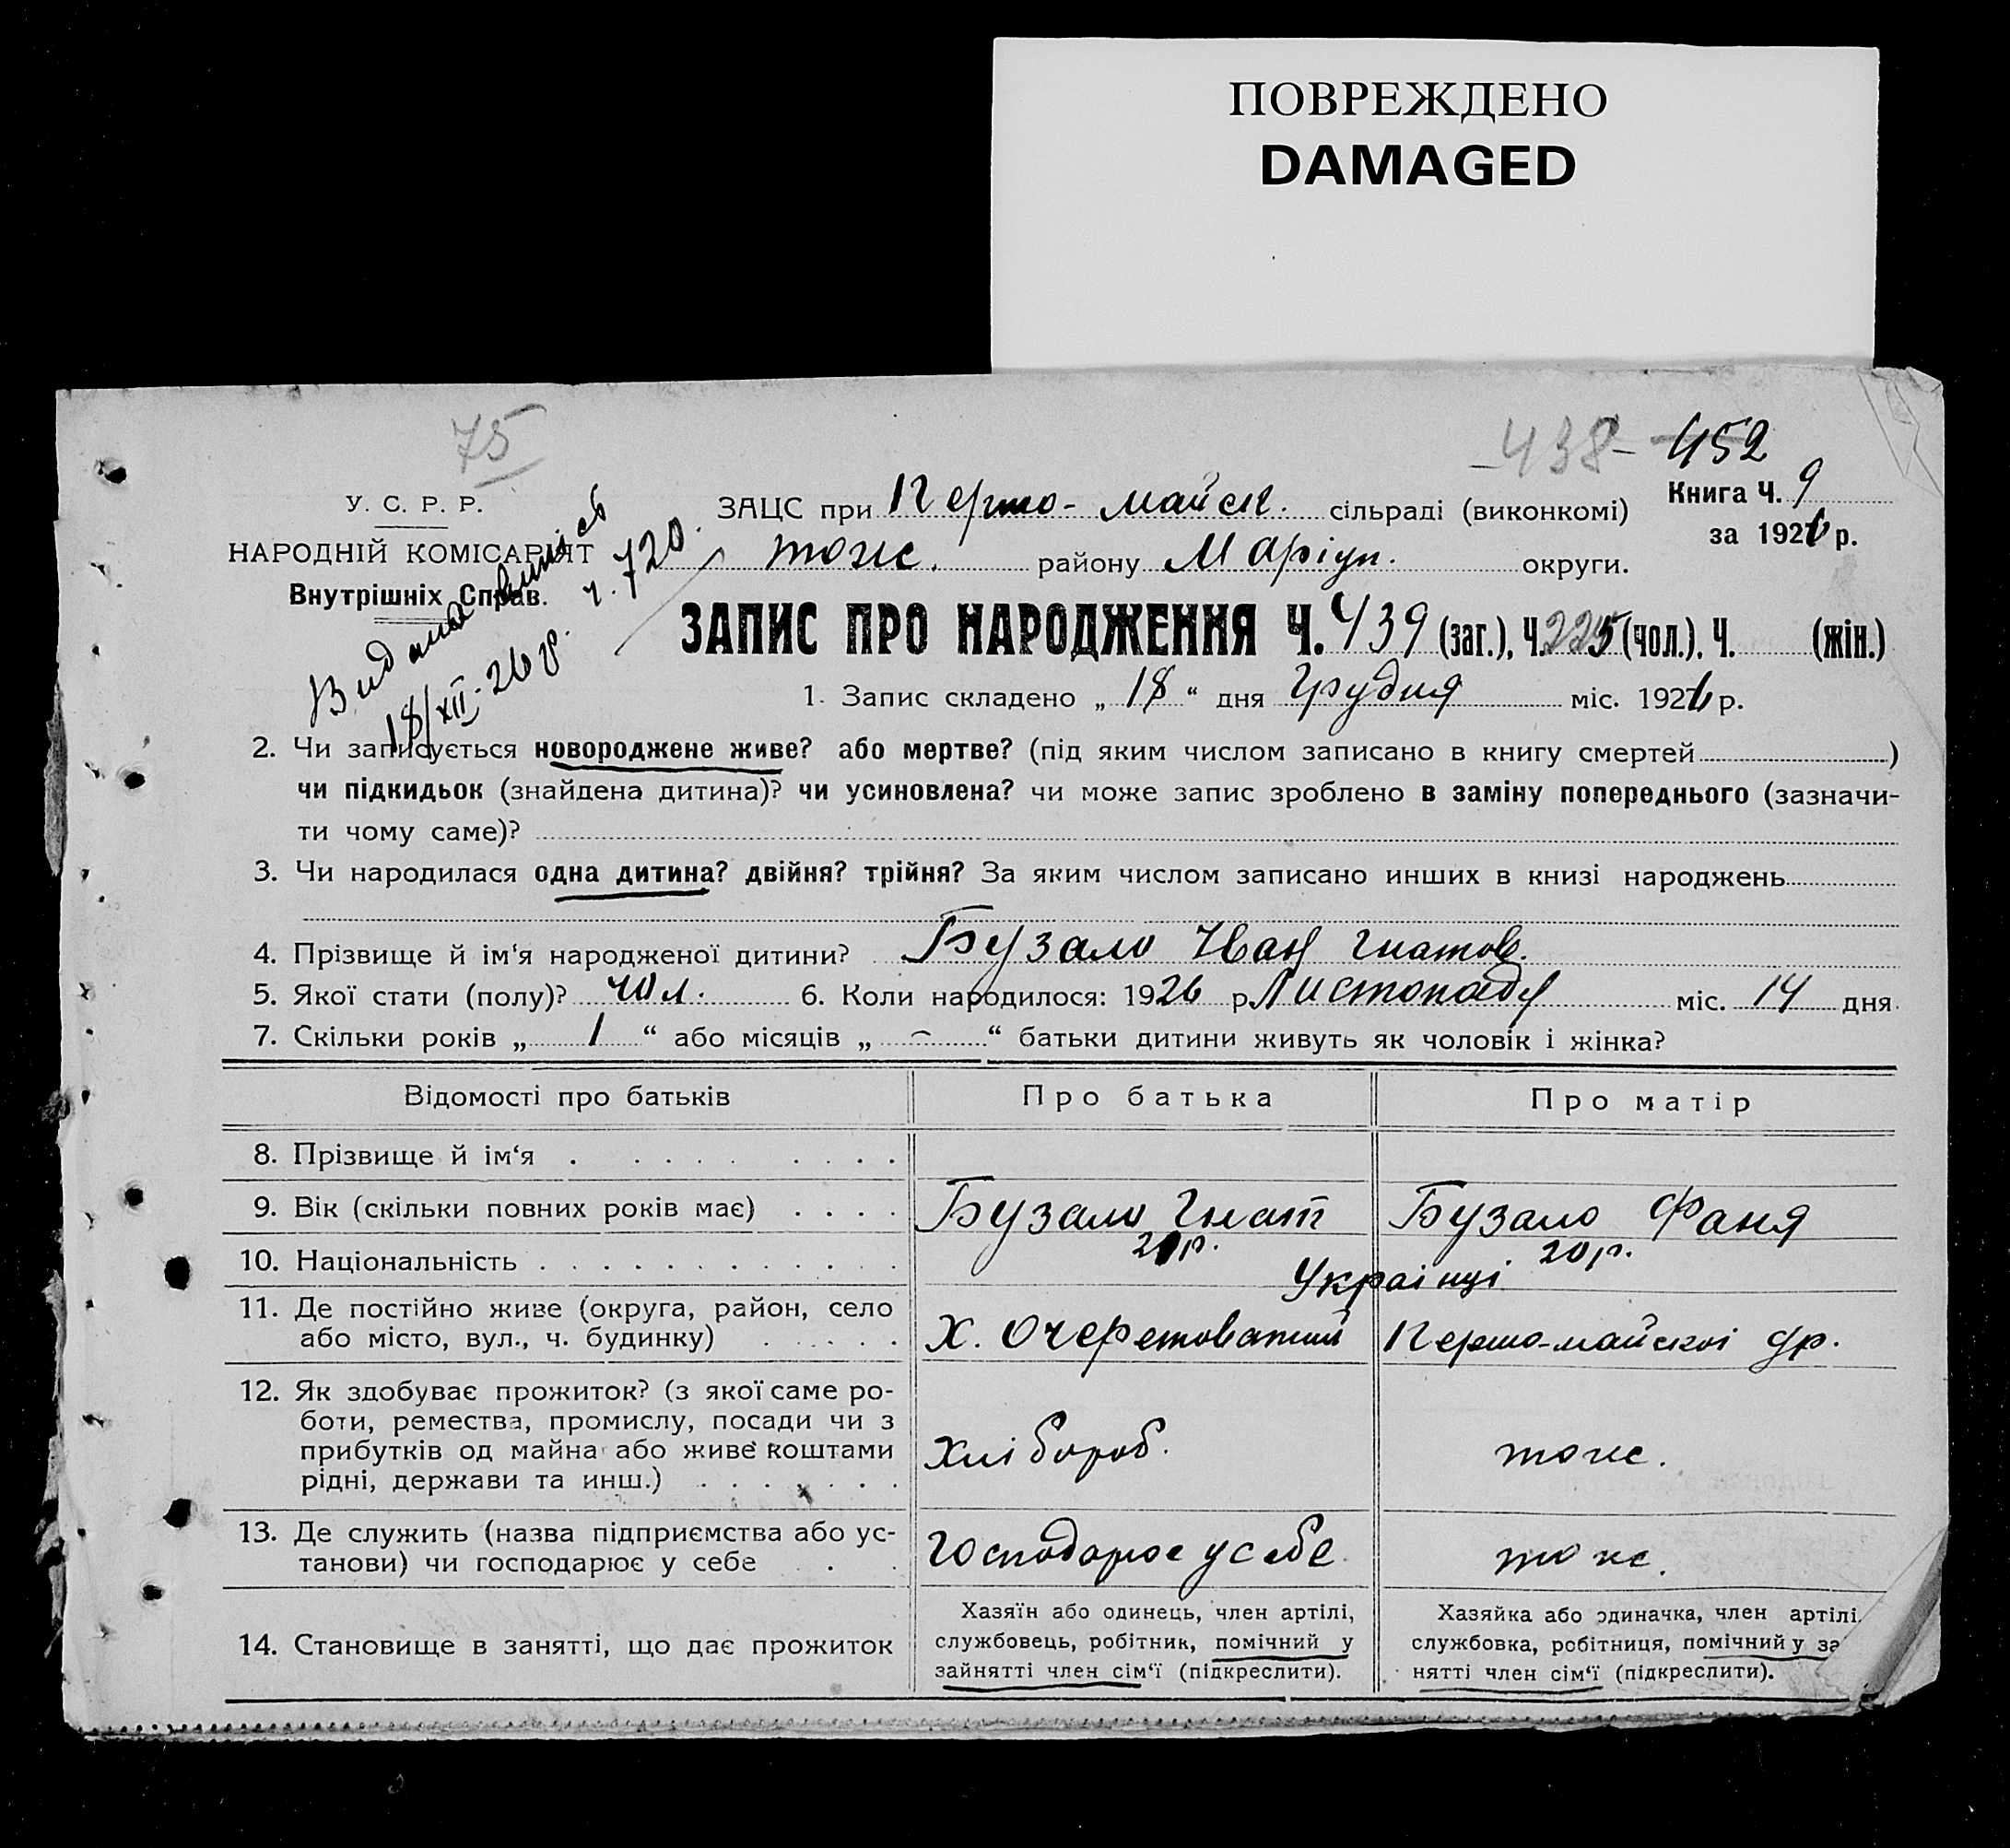 ПОВРЕЖДЕНО
DAMAGED
75
-438- 452
У. С. Р. Р.
НАРОДНІЙ КОМІСАРІЯТ
Внутрішніх Справ.
Видана випись
18/XII-26 р. ч. 720.
ЗАЦС при Першо-майск. сільраді (виконкомі)
Книга Ч. 9
за 1926 р.
тож. району Маріуп. округи.
ЗАПИС ПРО НАРОДЖЕННЯ Ч. 439 (заг.), Ч. 225 (чол.), Ч. (жін.)
1. Запис складено „ 18 “ дня Грудня міс. 1926 р.
2. Чи записується новороджене живе? або мертве? (під яким числом записано в книгу смертей )
чи підкидьок (знайдена дитина)? чи усиновлена? чи може запис зроблено в заміну попереднього (зазначи-
ти чому саме)?
3. Чи народилася одна дитина? двійня? трійня? За яким числом записано инших в книзі народжень
4. Прізвище й ім‘я народженої дитини? Бузало Иван Гнатов.
5. Якої стати (полу)? чол. 6. Коли народилося: 1926 р. Листопаду міс. 14 дня
7. Скільки років „ 1 “ або місяців „ – “ батьки дитини живуть як чоловік і жінка?
Відомості про батьків Про батька Про матір
8. Прізвище й ім‘я
9. Вік (скільки повних років має) Бузало Гнат Бузало Фаня
20 р.
10. Національність Українці
11. Де постійно живе (округа, район, село
або місто, вул., ч. будинку) Х. Очеретоватий Першо-майскоі др.
12. Як здобуває прожиток? (з якої саме ро-
боти, ремества, промислу, посади чи з
прибутків од майна або живе коштами
рідні, держави та инш.) Хлібороб. тож.
13. Де служить (назва підприємства або ус-
танови) чи господарює у себе Господарює у себе тож.
14. Становище в занятті, що дає прожиток
Хазяїн або одинець, член артілі,
службовець, робітник, помічний у
зайнятті член сім‘ї (підкреслити).
Хазяйка або одиначка, член артілі,
службовка, робітниця, помічний у за
нятті член сім‘ї (підкреслити).